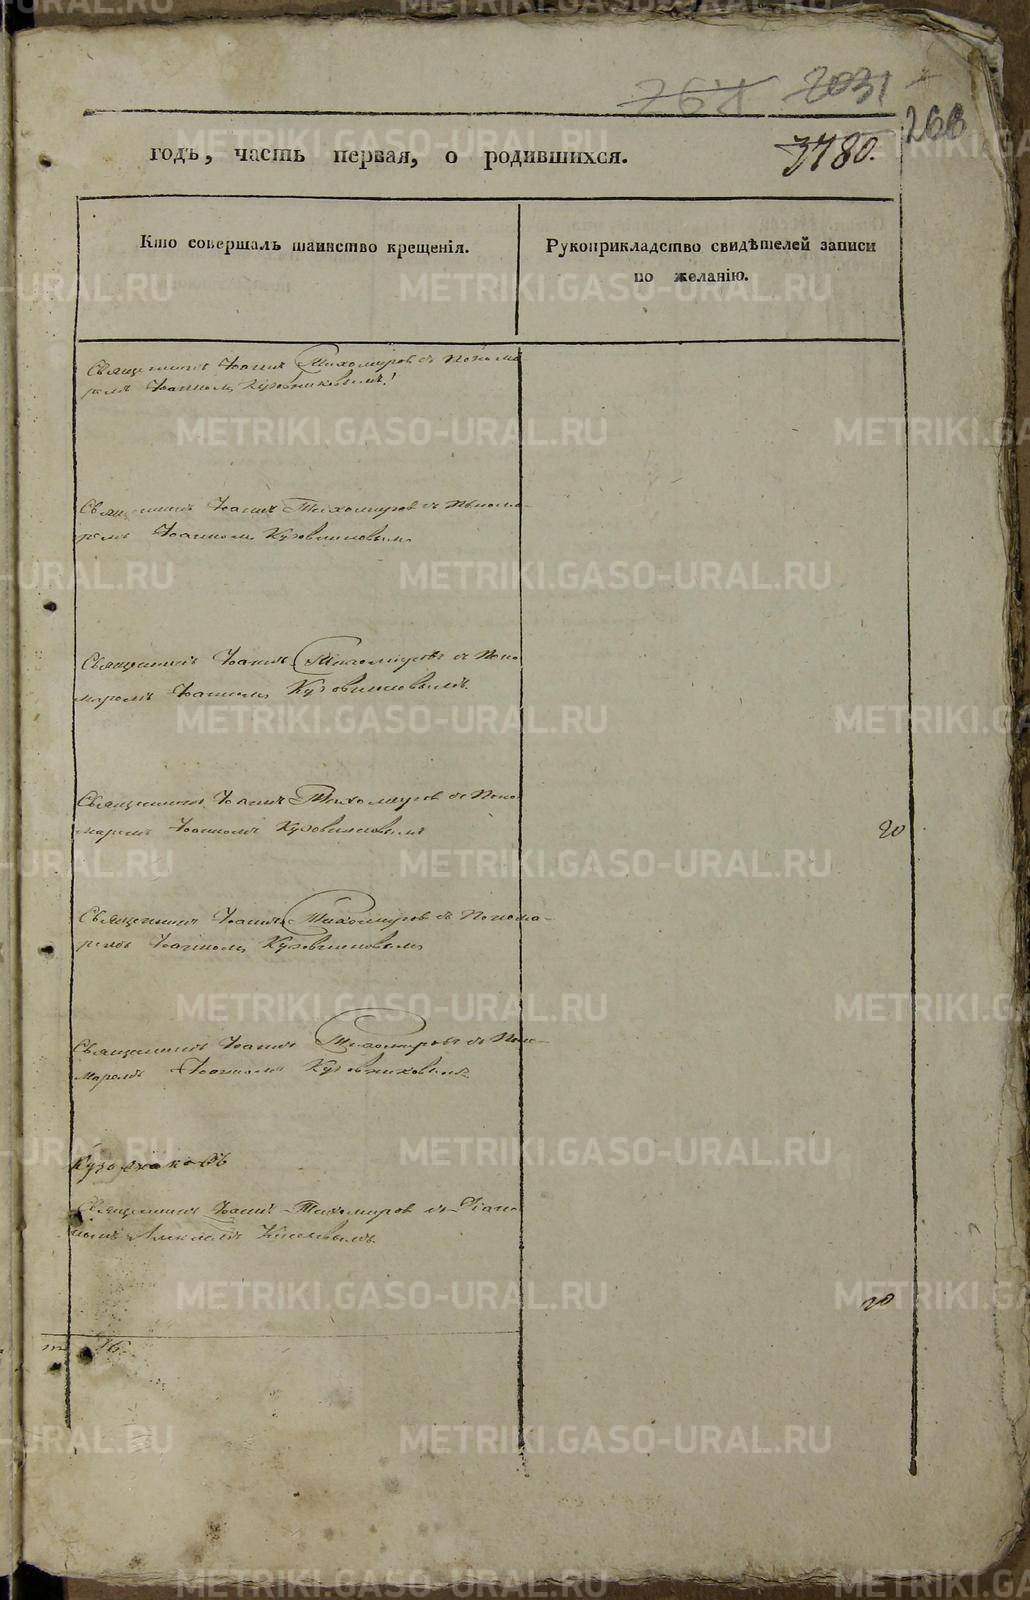 764 2031
268
годъ, часть первая, о родившихся. 3780.
Кто совершалъ таинство крещенія.
Рукоприкладство свидѣтелей записи
по желанію.
Священникъ Іоаннъ Тихомировъ съ Понома
ремъ Іоанномъ
Священникъ Іоаннъ Тихомировъ съ Понома-
ремъ Іоанномъ
Священникъ Іоаннъ Тихомировъ съ Поно
маремъ Іоанномъ
Священникъ Іоаннъ Тихомировъ съ Поно
маремъ Іоанномъ
20
Священникъ Іоаннъ Тихомировъ съ Понома-
ремъ Іоанномъ
Священникъ Іоаннъ Тихомировъ съ Поно-
маремъ Іоанномъ
Священникъ Іоаннъ Тихомировъ съ Діако
20
METRIKI.GASO-URAL.RU